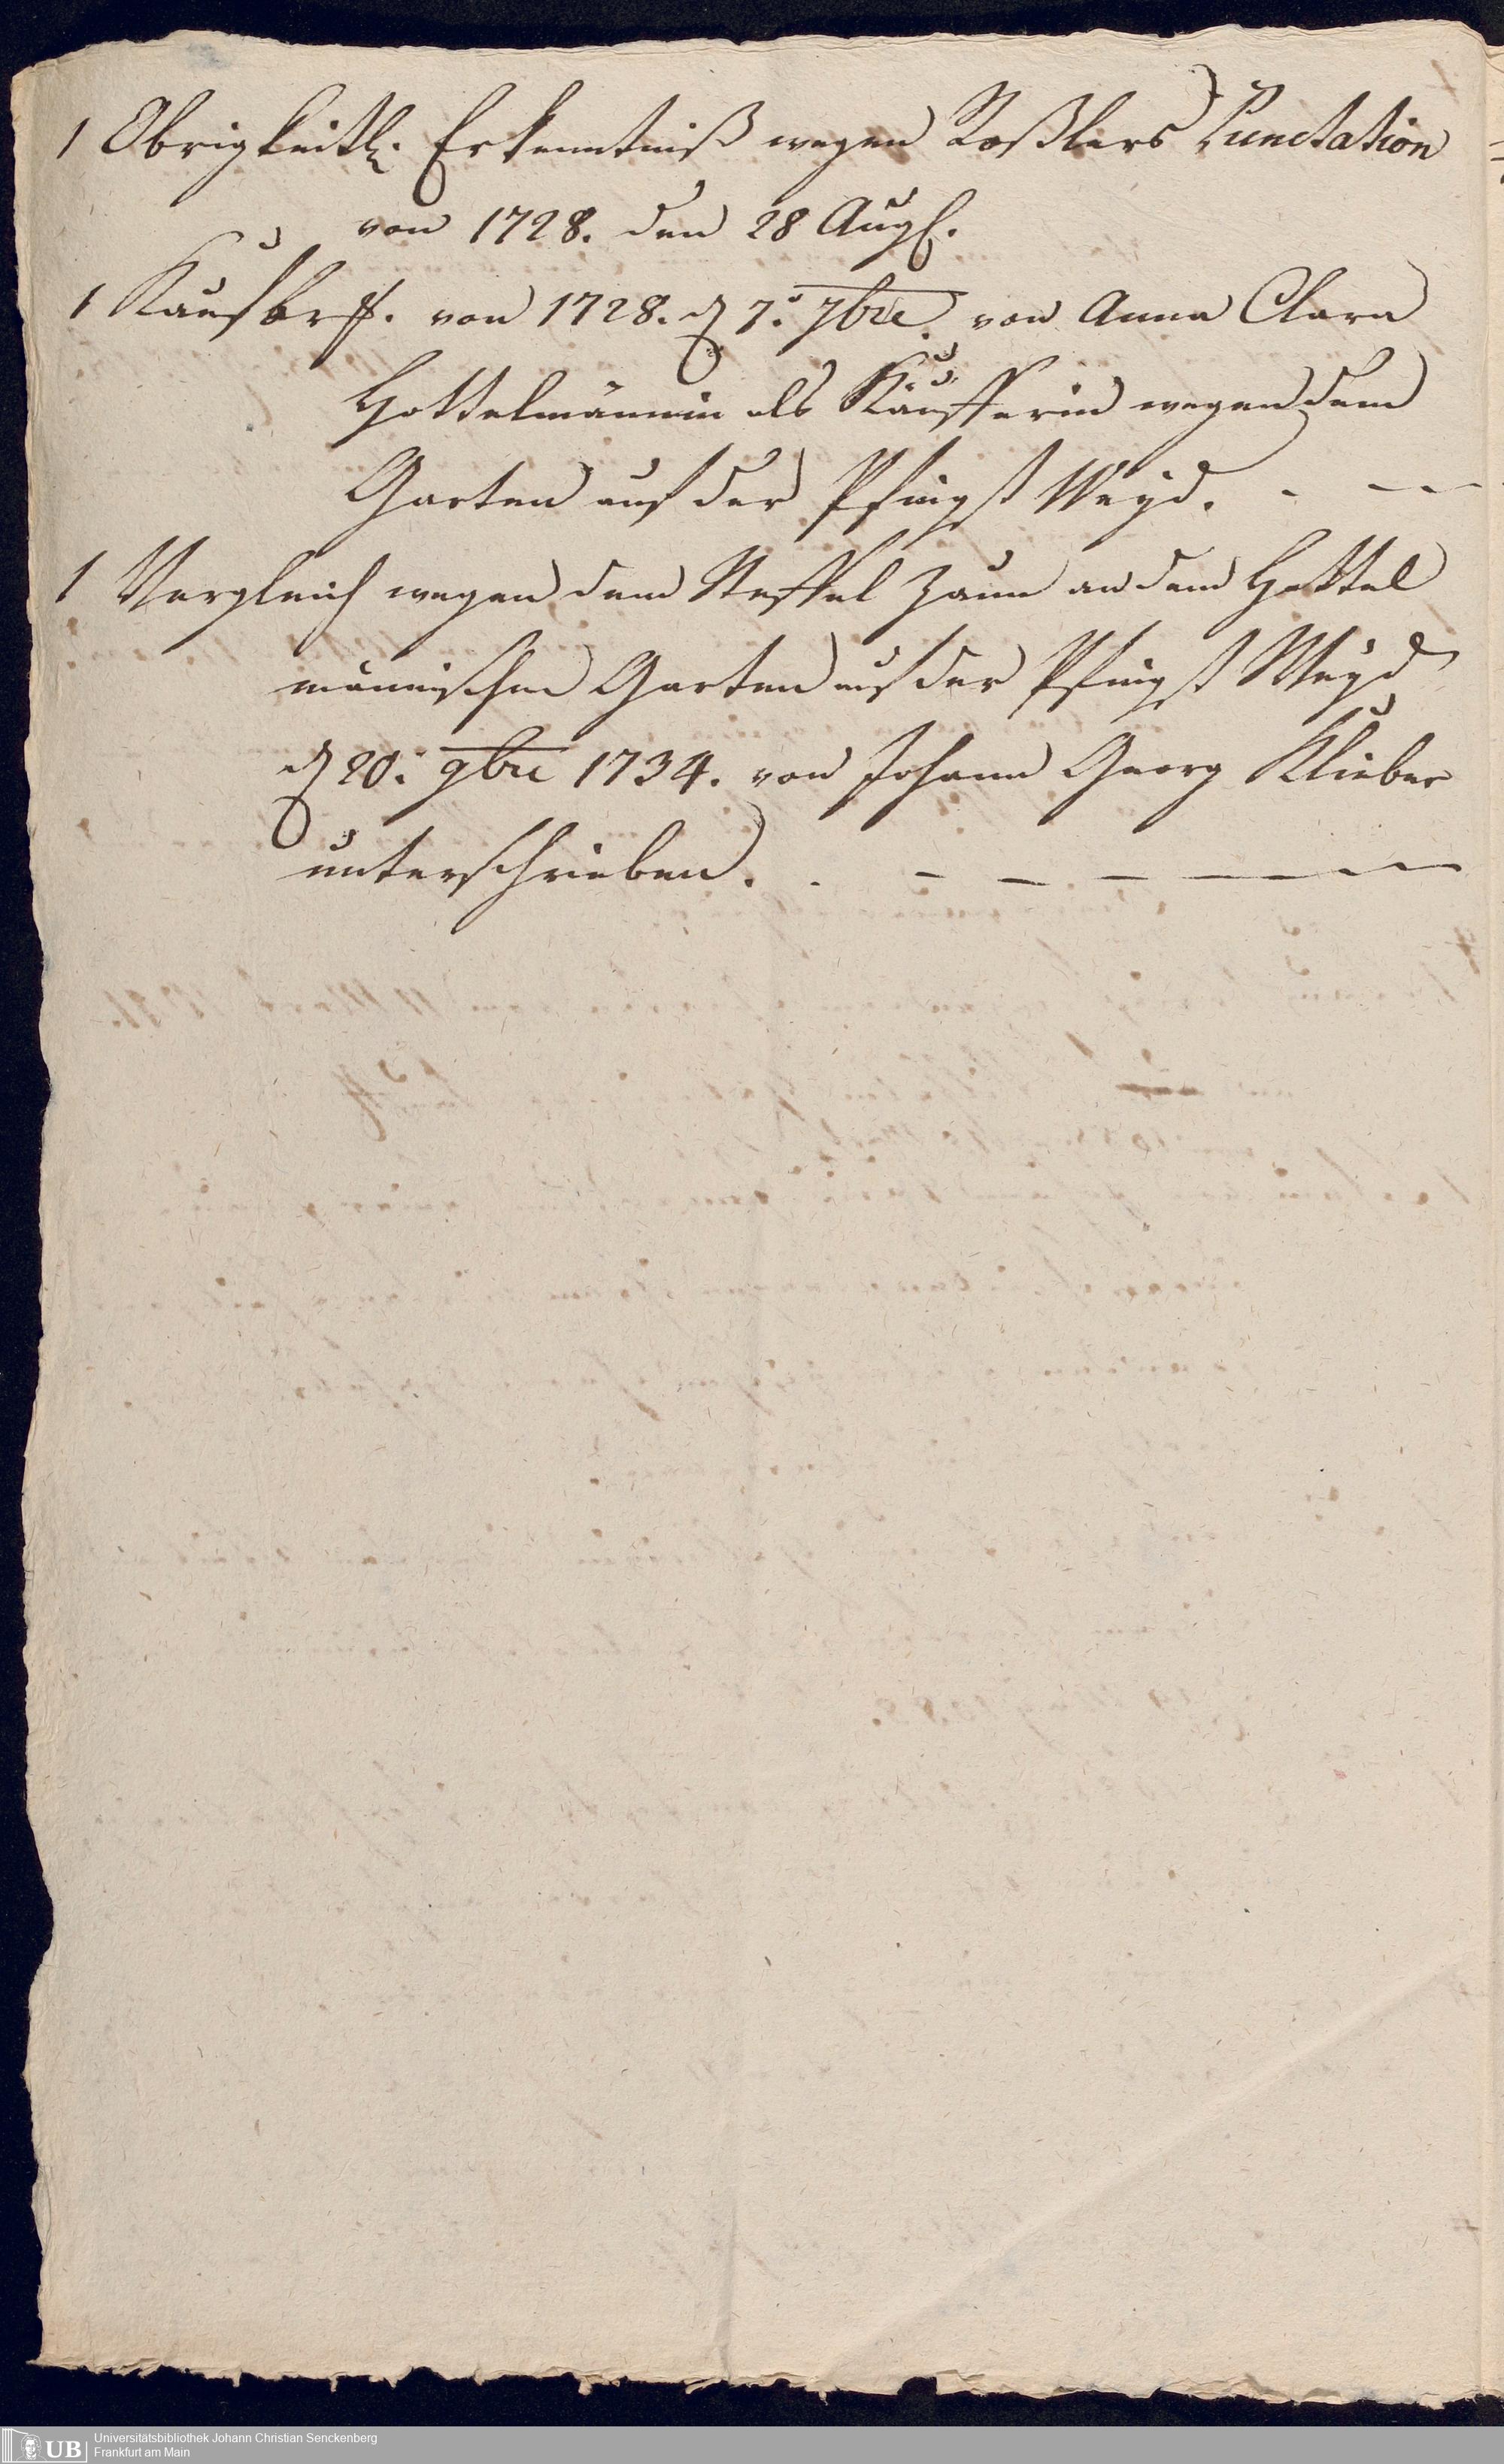 1 Obrigkeitl. Erkenntniß wegen Roßlers Punctation
von 1728. den 28 Augs.
1 Kaufbrff. von 1728. d 7. 7bre von Anna Clara
Hottelmännin als Käufferin wegen dem
Garten auf der Pfingst Weyd. - - -
1 Vergleich wegen dem Steffel Zaun an dem Hottel
männischen Garten auf der Pfingst Weyd
d 20. 9bre 1734. von Johann Georg Klieber
unterschrieben. - - - - - -
UB Universitätsbibliothek Johann Christian Senckenberg
Frankfurt am Main